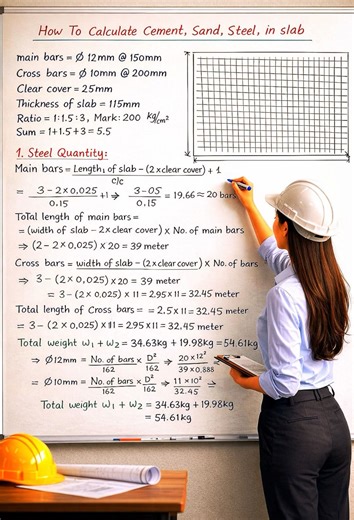 How To Calculate Cement, Sand, Steel, in slab
main bars = Ø 12mm @ 150mm
Cross bars = Ø 10mm @ 200mm
Clear cover = 25mm
Thickness of slab = 115mm
Ratio = 1:1.5:3, Mark: 200 kg/cm²
Sum = 1+1.5+3 = 5.5
1. Steel Quantity:
Main bars = Length1 of slab – (2 x clear cover) + 1
c/c
= 3 – 2 x 0.025 / 0.15 + 1 ⇒ 3 – 05 / 0.15 = 19.66 ≈ 20 bars
Total length of main bars =
= (width of slab – 2 x clear cover) x No. of main bars
⇒ (2 – 2 x 0.025) x 20 = 39 meter
Cross bars = width of slab – (2 x clear cover) x No. of bars
⇒ 3 – (2 x 0,025) x 20 = 39 meter
= 3 – (2 x 0.025) x 11 = 2.95 x 11 = 32.45 meter
Total length of Cross bars = = 2.5 x 11 = 32.45 meter
= 3 – (2 x 0.025) x 11 = 2.95 x 11 = 32.45 meter
Total weight w₁ + w₂ = 34.63kg + 19.98kg = 54.61kg
⇒ Ø12mm = No. of bars / 162 x D² / 162 ⇒ 20 x 12² / 39 x 0.888
= Ø10mm = No. of bars / 162 x D² / 162 ⇒ 11 x 10² / 32.45 ⇒
Total weight w₁ + w₂ = 34.63kg + 19.98kg
= 54.61kg